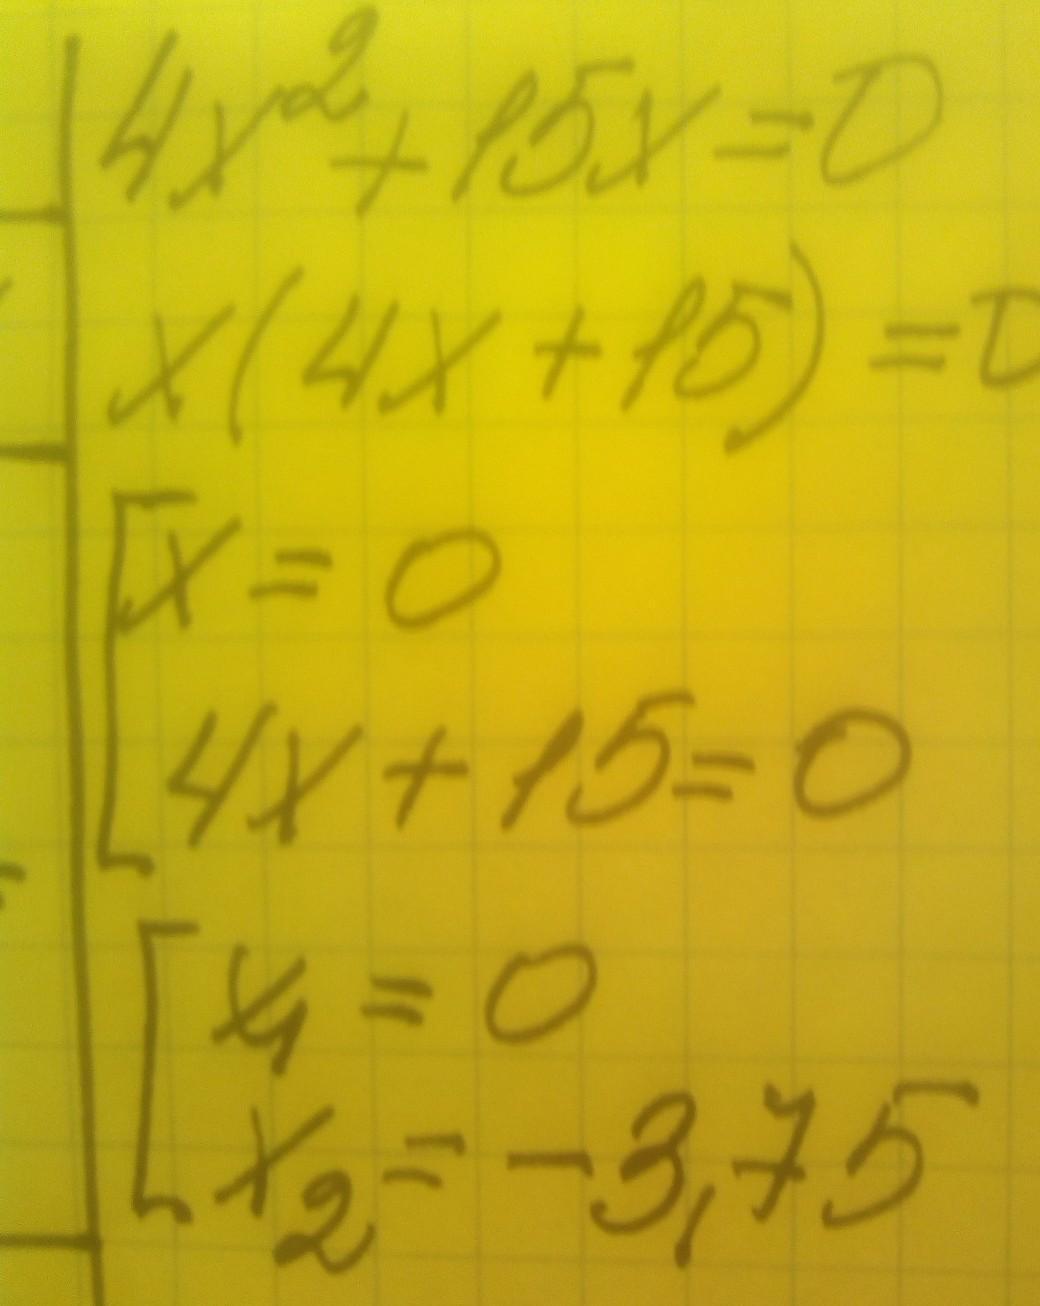 4x² + 15x = 0
x(4x + 15) = 0
x = 0
4x + 15 = 0
x₁ = 0
x₂ = -3,75